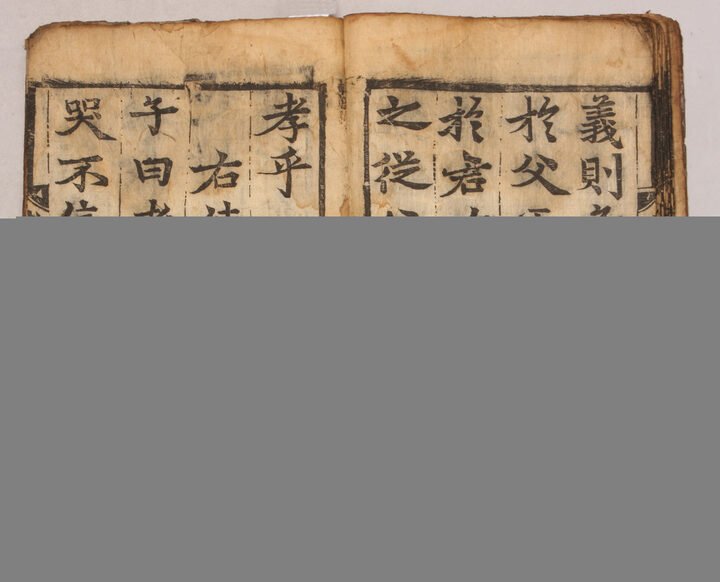 義則
於父
於君
之從
孝乎
右
子曰孝
哭不